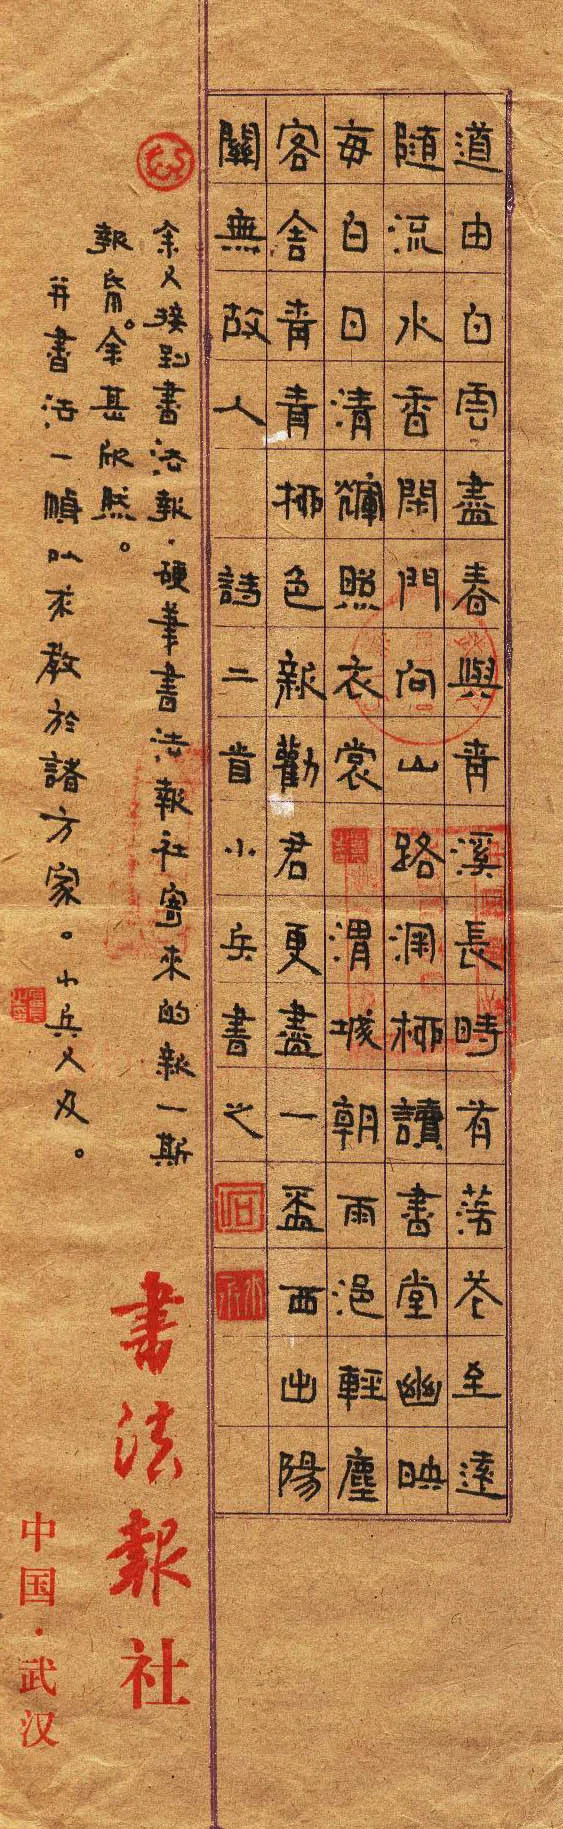 道由白雲盡春與青溪長時有落花至遠
隨流水香閑門向山路深柳讀書堂幽映
每白日清輝照衣裳渭城朝雨浥輕塵
客舍青青柳色新勸君更盡一盃西出陽
關無故人 詩二首小兵書之
余又接到書法報·硬筆書法報社寄來的新一期
報帋。余甚欣然。
并書法一幀以求教於諸方家。小兵又及。
書法報社
中国·武汉